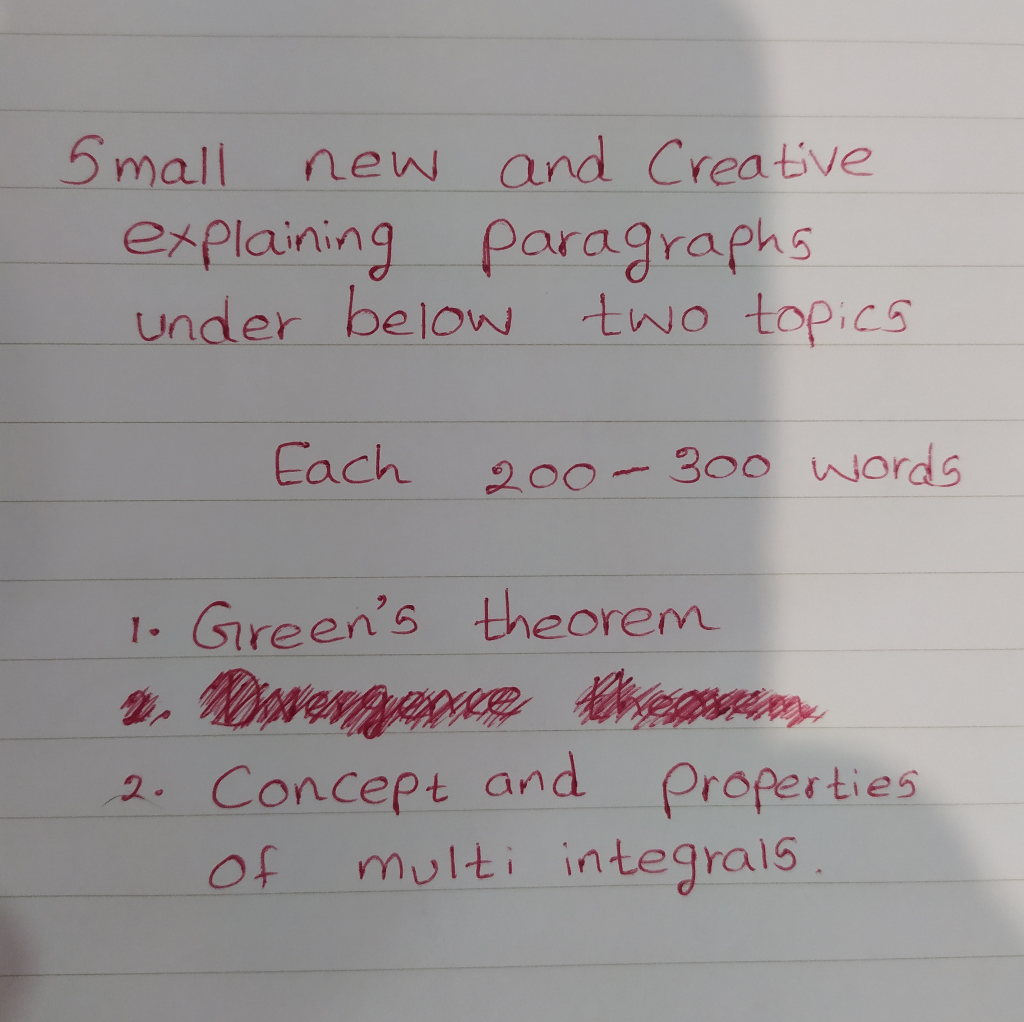 Small new and Creative
explaining paragraphs
under below two topics
Each 200 - 300 words
1. Green's theorem
2. Concept and properties
of multi integrals.